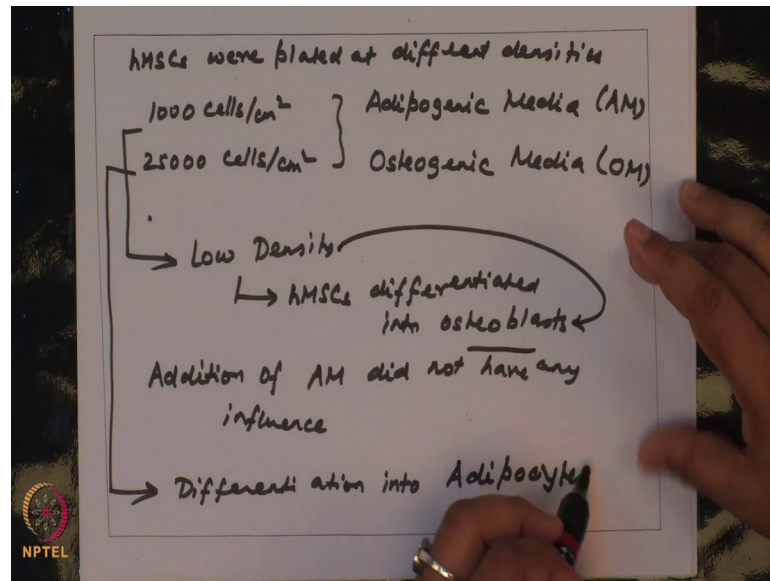 hMSCs were plated at different densities
1000 cells/cm² } Adipogenic Media (AM)
25000 cells/cm² Osteogenic Media (OM)
Low Density
hMSCs differentiated
into osteoblasts
Addition of AM did not have any
influence
Differentiation into Adipocyte
NPTEL